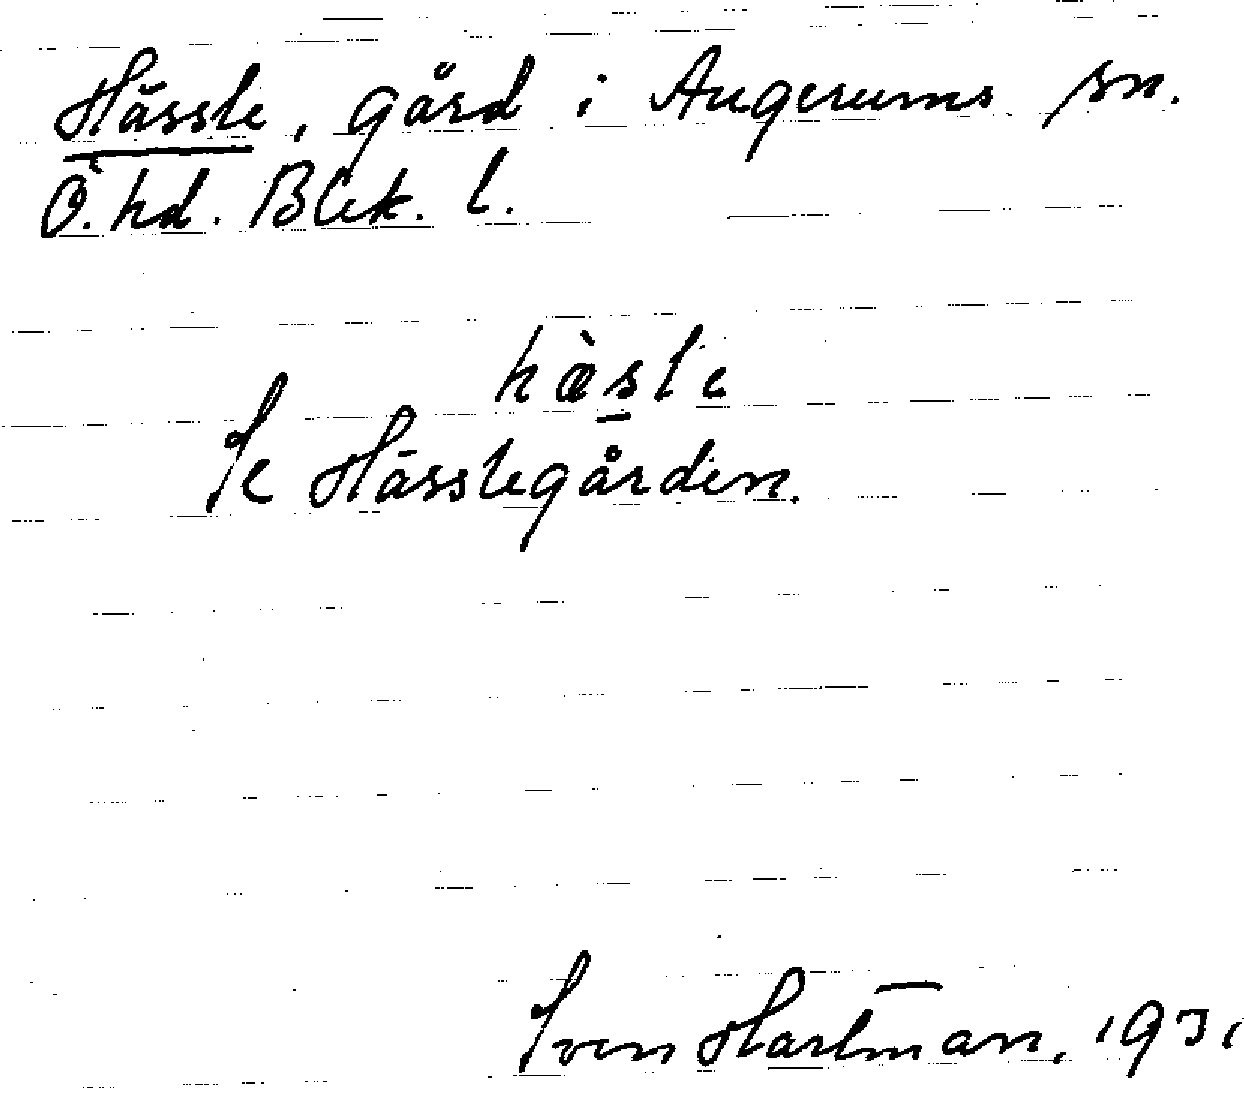 Hässle, gård i Augerums sn.
Ö. hd. Blek. l.
hæ̀s̱le
Se Hässlegården.
Sven Hartman, 1931